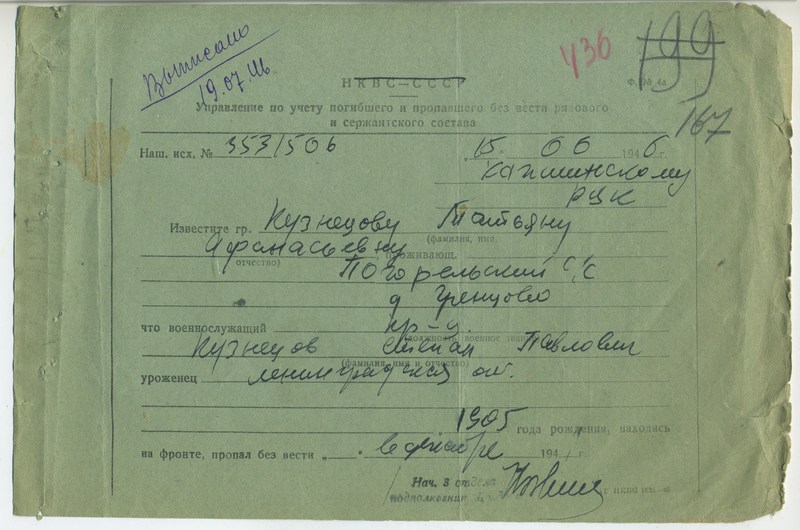 Выписано
19.07.46
436
199
167
НКВС—СССР
Ф. № 4а
Управление по учету погибшего и пропавшего без вести рядового
и сержантского состава
Наш. исх. № 353/506
15 06 1946 г.
Капшинскому
РВК
Известите гр. Кузнецову Татьяну
(фамилия, имя,
Афанасьевну
отчество) проживающ.
Погорельский с/с
д Гренцово
что военнослужащий кр-ц.
(должность военное звание)
Кузнецов Степан Павлович
(фамилия, имя и отчество)
уроженец Ленинградской об.
1905 года рождения, находясь
на фронте, пропал без вести „ " в декабре 194 г.
Нач. 3 отдела
подполковник